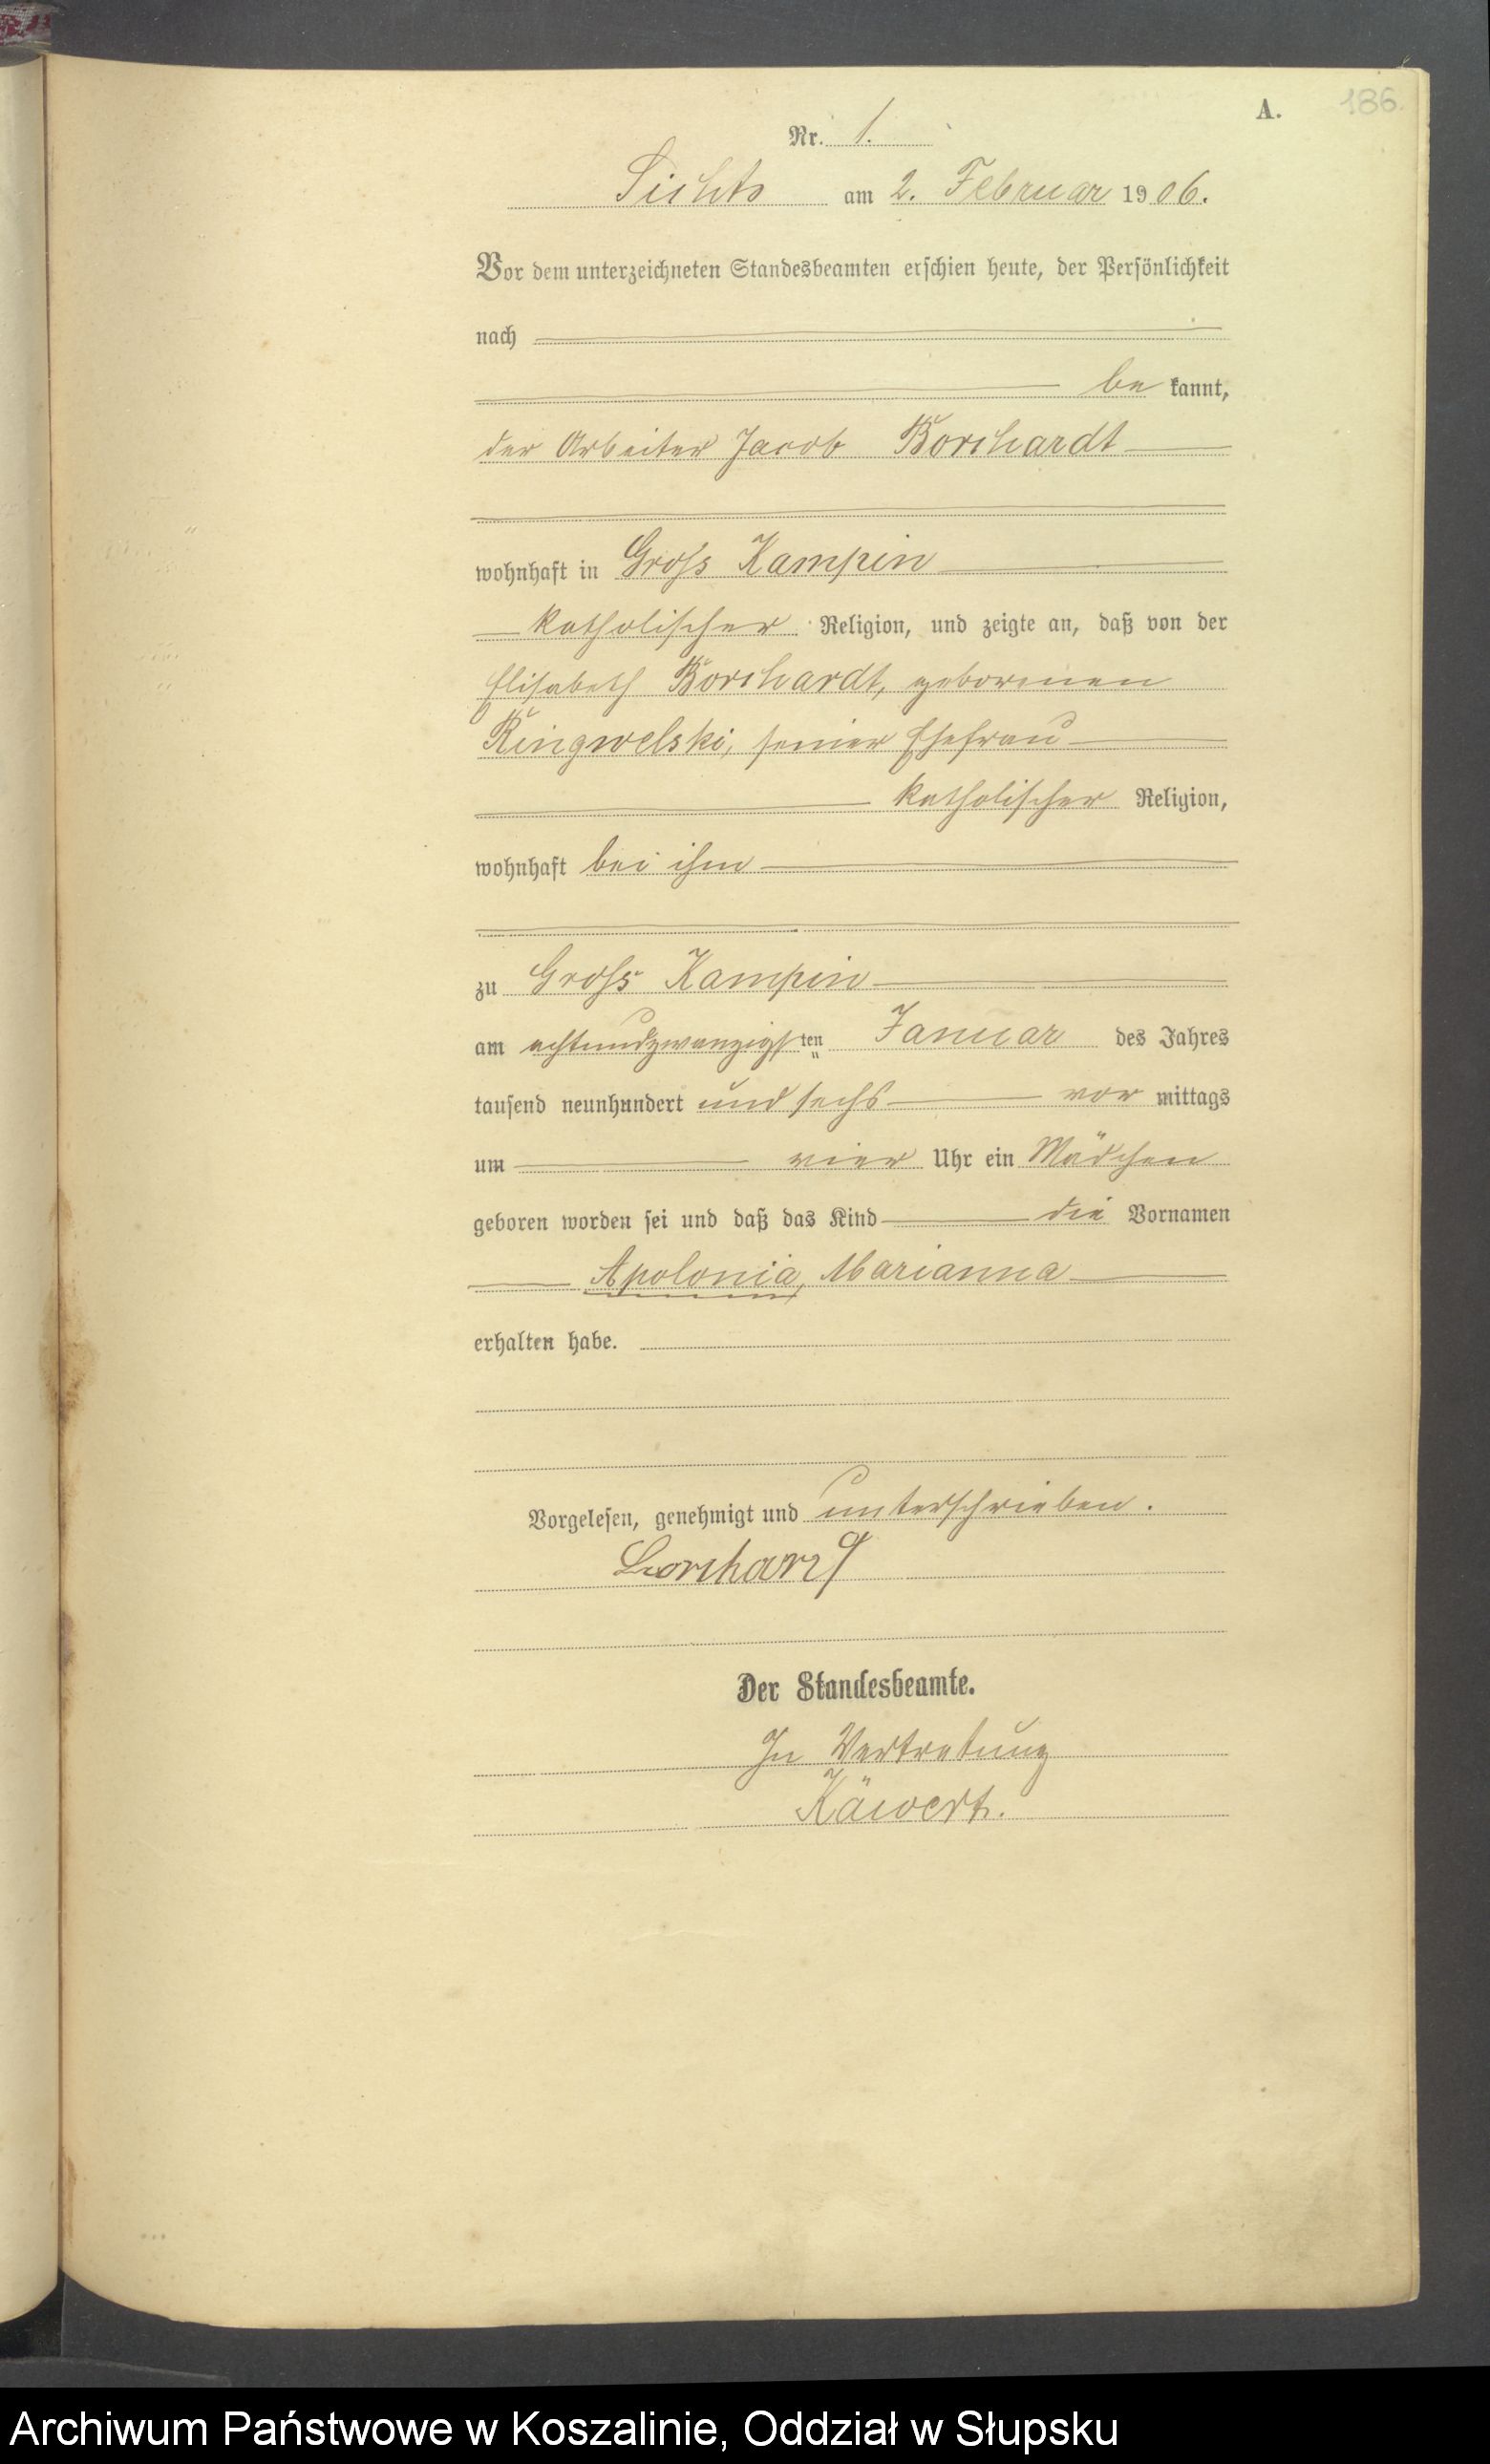 A. 186.
Nr. 1.
Sichts am 2. Februar 1906.
Vor dem unterzeichneten Standesbeamten erschien heute, der Persönlichkeit
nach
be kannt,
der Arbeiter Jacob Borchardt
wohnhaft in Gross Kampin
katholischer Religion, und zeigte an, daß von der
Elisabeth Borchardt, geborenen
Ringwelski, seiner Ehefrau
katholischer Religion,
wohnhaft bei ihm
zu Gross Kampin
am achtundzwanzigsten Januar des Jahres
tausend neunhundert und sechs vor mittags
um vier Uhr ein Mädchen
geboren worden sei und daß das Kind die Vornamen
Apolonia, Marianna
erhalten habe.
Vorgelesen, genehmigt und unterschrieben.
Der Standesbeamte.
In Vertretung
Käwert.
Archiwum Państwowe w Koszalinie, Oddział w Słupsku